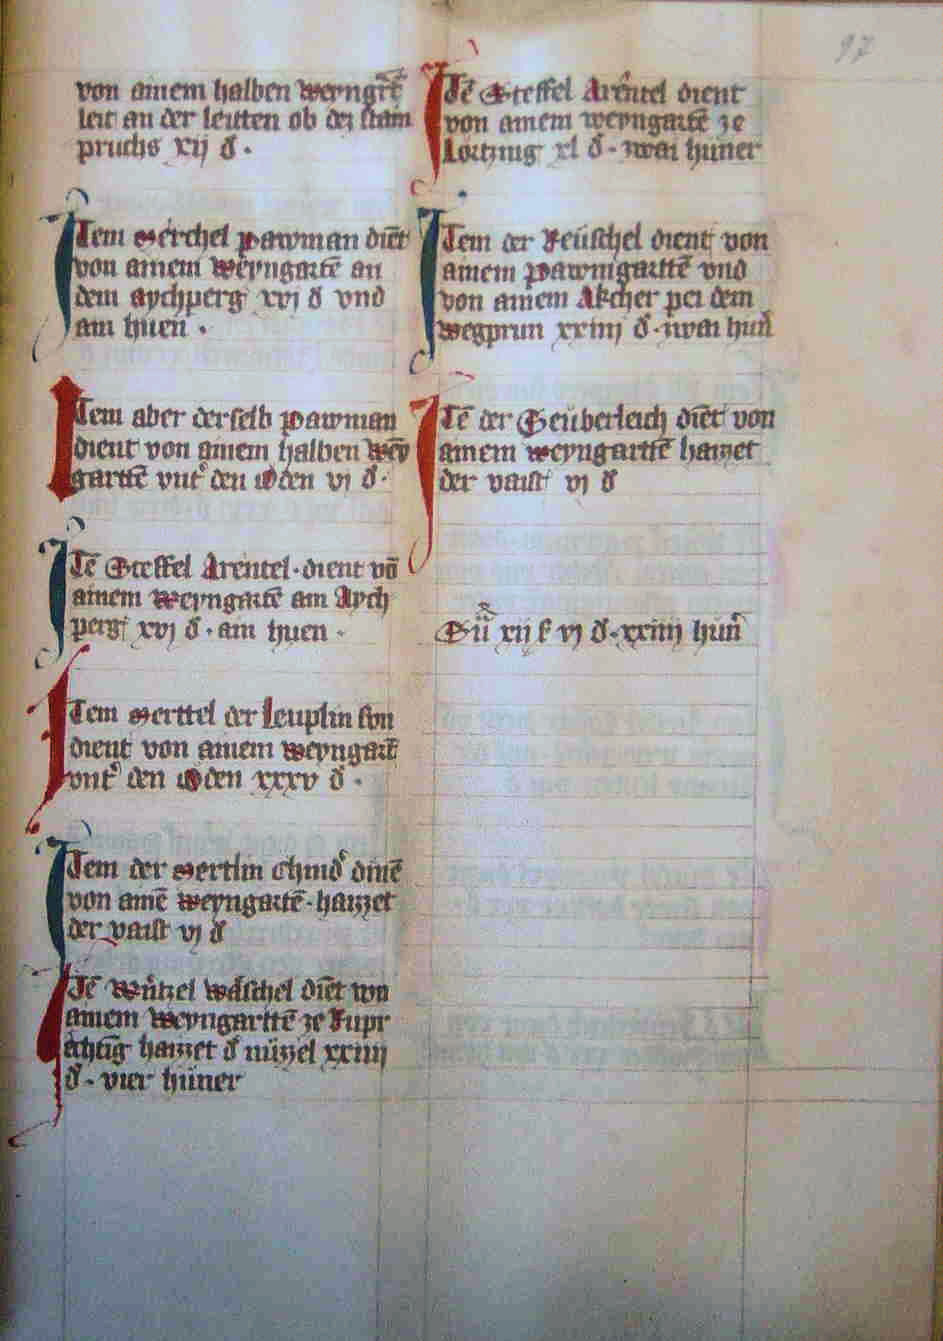 97
von ainem halben weyngrtē
leit an der leitten ob der stain
pruchs xij d .
Item Merchel pawman diēt
von ainem weyngartē an
dem aychperg xvj d vnd
ain huen .
Item aber derselb pawman
dient von ainem halben wey
gartē vnt' den Oden vj d .
Itē Steffel Arentel . dient vō
ainem weyngartē am Aych
perg xvj d . ain huen .
Item Merttel der leuplin sun
dient von ainem weyngartē
vnt' den Oden xxxv d .
Item der Mertlin dinē
von ainē weyngartē . haizzet
der vaist vj d
Itē Wuͤtzel waͤschel diēt von
ainem weyngarttē ze Rupr
echtig haizzet d' nuzzel xxiiij
d . vier huner
Itē Steffel Arentel dient
von ainem weyngartē ze
Lortzing xl d . zwai huner
Item der Reuschel dient von
ainem pawmgarttē vnd
von ainem Akcher pei dem
wegprun xxiiij d . zwai hun'
Itē der Seuberleich diēt von
ainem weyngarttē haizzet
der vaist vj d
Sūͣ xij ß vj d . xxiiij hun'